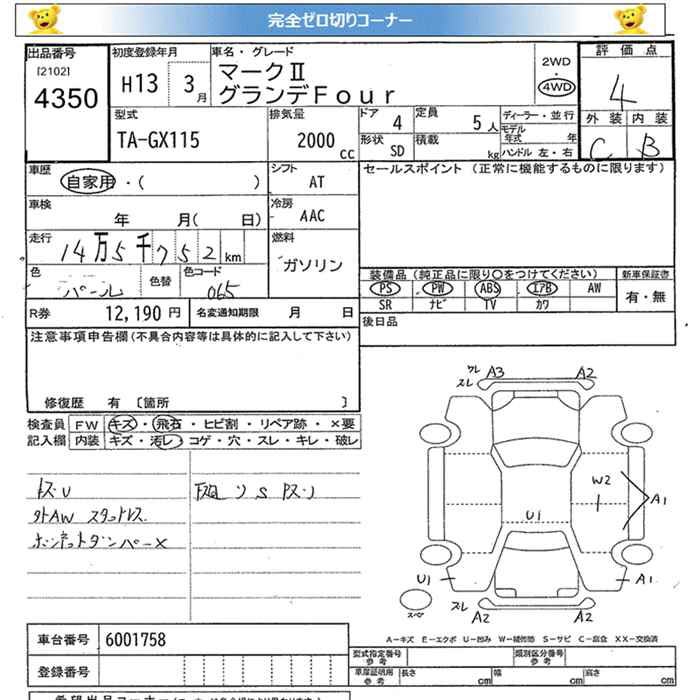 完全ゼロ切りコーナー
出品番号
[2102]
4350
初度登録年月
H13 3月
車名・グレード
マークⅡ
グランデFour
2WD
・
4WD
評価点
4
外装 内装
C B
型式
TA-GX115
排気量
2000 cc
ドア 4
定員 5人
形状 SD
積載 kg
ディーラー・並行
モデル年式 年
ハンドル 左・右
車歴
自家用・( )
シフト
AT
セールスポイント (正常に機能するものに限ります)
車検
年 月( 日)
冷房
AAC
走行
14万5千752km
燃料
ガソリン
色
パール
色替
色コード
065
装備品(純正品に限り○をつけてください)
PS PW ABS エアB AW
SR ナビ TV カワ
新車保証書
有・無
R券 12,190円
名変通知期限 月 日
後日品
注意事項申告欄(不具合内容等は具体的に記入して下さい)
修復歴 有 〔箇所 〕
検査員記入欄
FW キズ・飛石・ヒビ割・リペア跡・×要
内装 キズ・汚レ・コゲ・穴・スレ・キレ・破レ
外AW スタッドレス
ボンネットダンパー×
ワレ
スレ
A3 A2
W2
A1
U1
U1 A1
スペ
スレ
A2 A2
A-キズ E-エクボ U-凹み W-補修跡 S-サビ C-腐食 XX-交換済
車台番号 6001758
登録番号
型式指定番号
参考
類別区分番号
参考
車庫証明用
参考
長さ cm
幅 cm
高さ cm